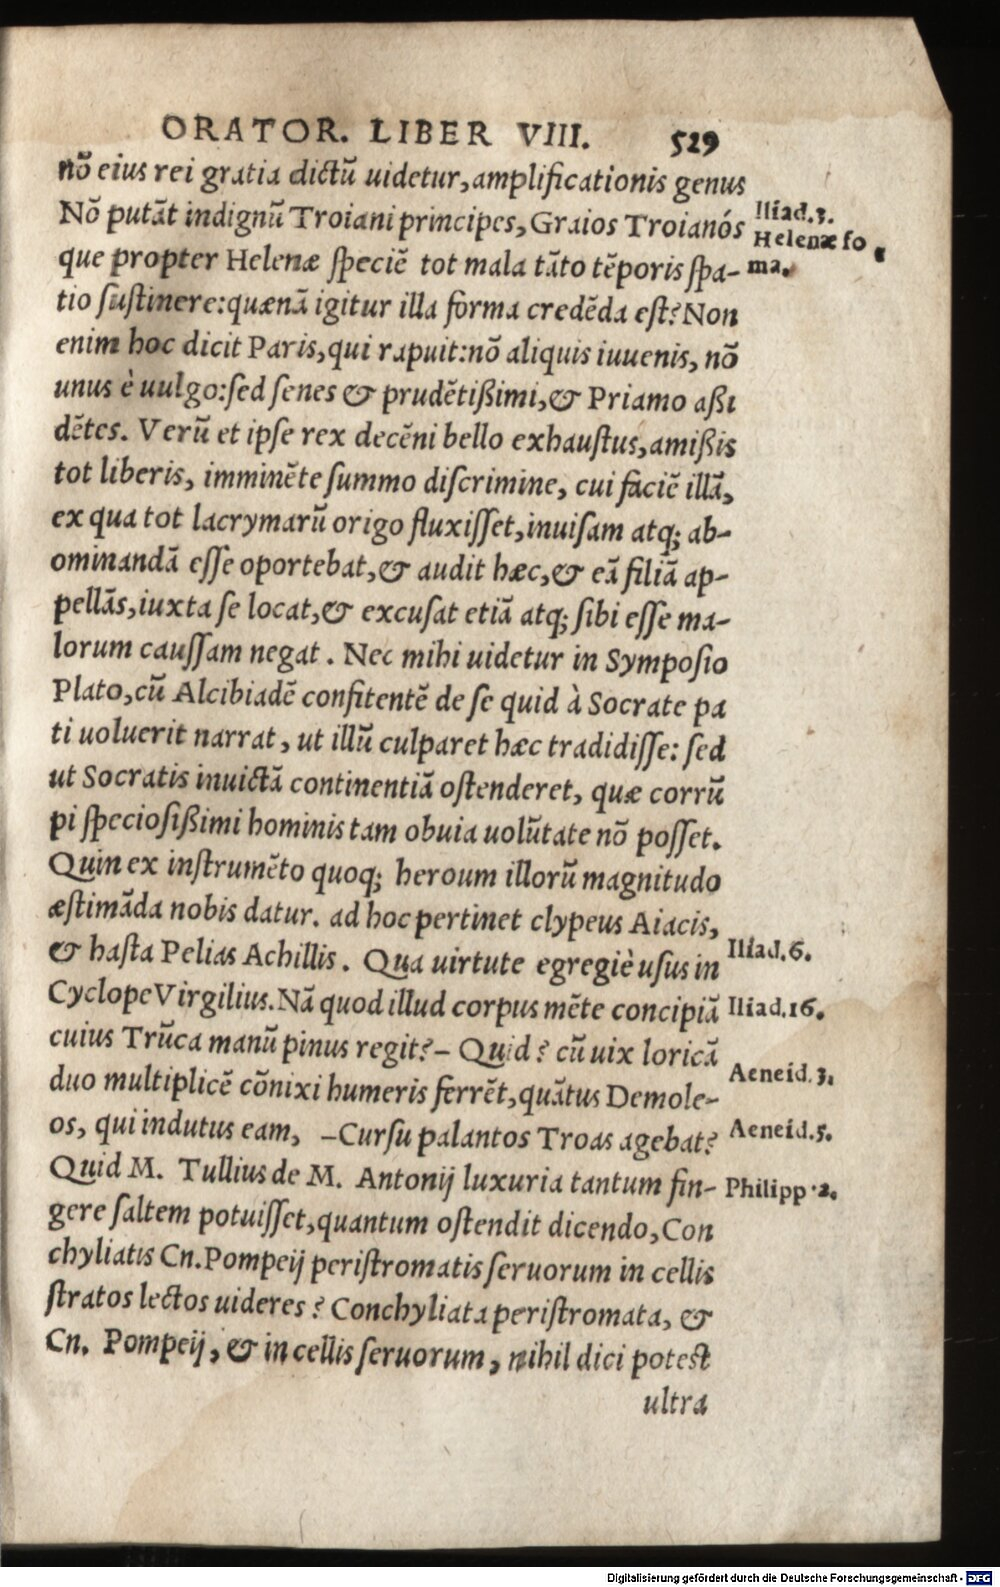 ORATOR. LIBER VIII. 529
nõ eius rei gratia dictũ uidetur, amplificationis genus
Nõ putãt indignũ Troiani principes, Graios Troianós
que propter Helenæ ſpeciẽ tot mala tãto tẽporis ſpa-
tio ſuſtinere: quænã igitur illa forma credẽda eſt? Non
enim hoc dicit Paris, qui rapuit: nõ aliquis iuuenis, nõ
unus è uulgo: ſed ſenes & prudẽtißimi, & Priamo aßi
dẽtes. Verũ et ipſe rex decẽni bello exhauſtus, amißis
tot liberis, imminẽte ſummo diſcrimine, cui faciẽ illã,
ex qua tot lacrymarũ origo fluxiſſet, inuiſam atq; ab-
ominandã eſſe oportebat, & audit hæc, & eã filiã ap-
pellãs, iuxta ſe locat, & excuſat etiã atq; ſibi eſſe ma-
lorum cauſſam negat. Nec mihi uidetur in Sympoſio
Plato, cũ Alcibiadẽ confitentẽ de ſe quid à Socrate pa
ti uoluerit narrat, ut illũ culparet hæc tradidiſſe: ſed
ut Socratis inuictã continentiã oſtenderet, quæ corrũ
pi ſpecioſißimi hominis tam obuia uolũtate nõ poſſet.
Quin ex inſtrumẽto quoq; heroum illorũ magnitudo
æſtimãda nobis datur. ad hoc pertinet clypeus Aiacis,
& haſta Pelias Achillis. Qua uirtute egregiè uſus in
Cyclope Virgilius. Nã quod illud corpus mẽte concipiã
cuius Trũca manũ pinus regit?– Quid? cũ uix loricã
duo multiplicẽ cõnixi humeris ferrẽt, quãtus Demole-
os, qui indutus eam, –Curſu palantos Troas agebat?
Quid M. Tullius de M. Antonij luxuria tantum fin-
gere ſaltem potuiſſet, quantum oſtendit dicendo, Con
chyliatis Cn. Pompeij periſtromatis ſeruorum in cellis
ſtratos lectos uideres? Conchyliata periſtromata, &
Cn. Pompeij, & in cellis ſeruorum, nihil dici poteſt
ultra
Iliad. 3.
Helenæ fo
ma.
Iliad. 6.
Iliad. 16.
Aeneid. 3.
Aeneid. 5.
Philipp. 2.
Digitalisierung gefördert durch die Deutsche Forschungsgemeinschaft - DFG